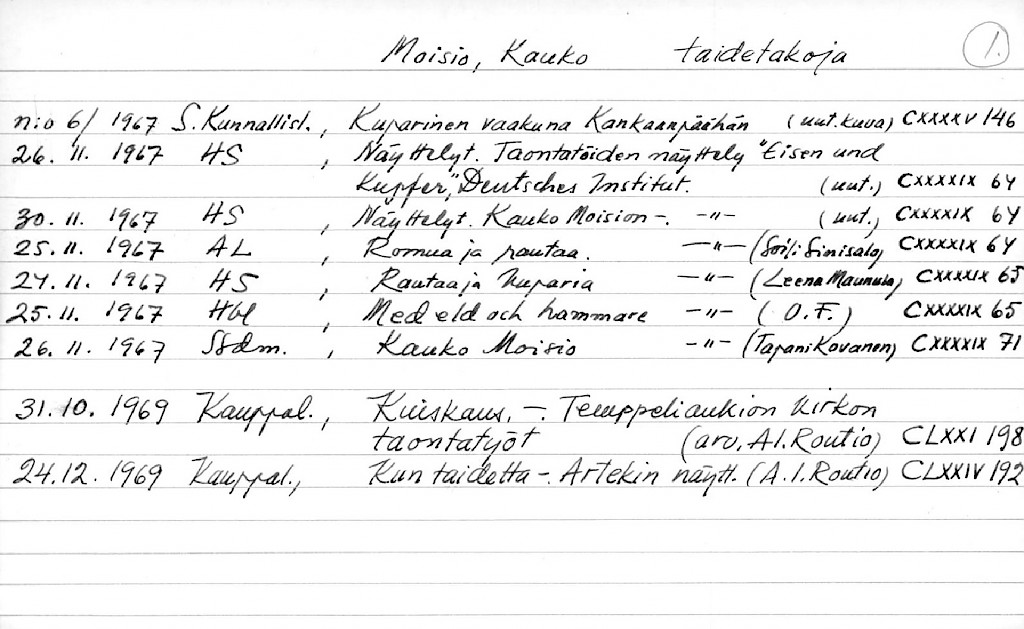 Moisio, Kauko taidetakoja 1.
n:o 6/ 1967 S. Kunnallisl., Kuparinen vaakuna Kankaanpäähän (uut.kuva) CXXXXV 146
26. 11. 1967 HS , Näyttelyt. Taontatöiden näyttely "Eisen und
Kupfer", Deutsches Institut. (uut.) CXXXXIX 64
30. 11. 1967 HS , Näyttelyt. Kauko Moision -. -"- (uut.) CXXXXIX 64
25. 11. 1967 AL , Romua ja rautaa. -"- (Soili Sinisalo) CXXXXIX 64
24. 11. 1967 HS , Rautaa ja kuparia -"- (Leena Maunula) CXXXXIX 65
25. 11. 1967 Hbl , Med eld och hammare -"- (O.F.) CXXXXIX 65
26. 11. 1967 Ssdm. , Kauko Moisio -"- (Tapani Kovanen) CXXXXIX 71
31. 10. 1969 Kauppal., Kuiskaus. -. Temppeliaukion kirkon
taontatyöt (arv. A.I. Routio) CLXXI 198
24.12. 1969 Kauppal., Kun taidetta -. Artekin näytt. (A.I. Routio) CLXXIV 192